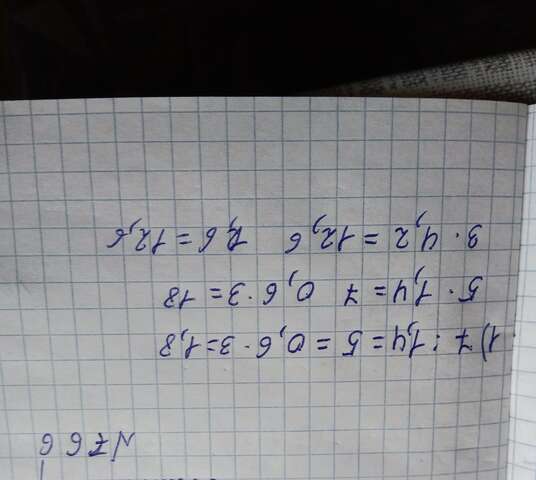 N766
1) 7 : 1,4 = 5 = 0,6 · 3 = 1,8
5 · 1,4 = 7 0,6 · 3 = 18
3 · 4,2 = 12,6 = 12,6